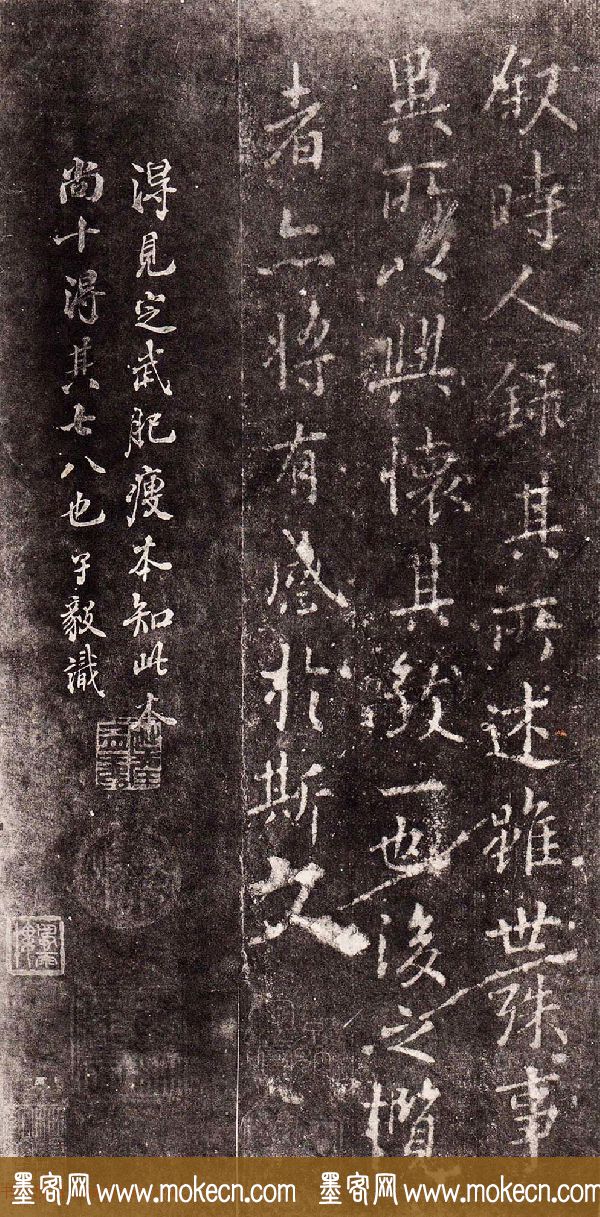 叙時人録其所述雖世殊事
異所以興懷其致一也後之攬
者亦將有感於斯文
得見定武肥瘦本知此本
尚十得其七八也子毅識
墨客网 www.mokecn.com 墨客网 www.mokecn.com